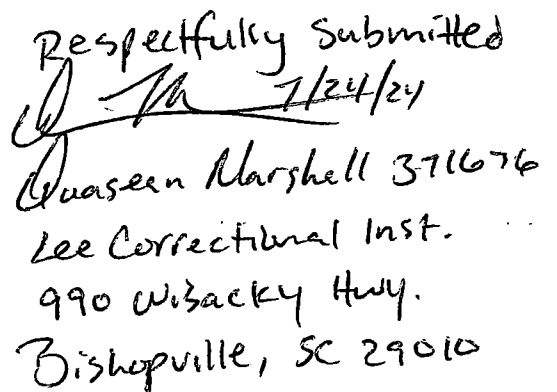 Respectfully Submitted
7/24/24
Quasean Marshell 371676
Lee Correctional Inst.
990 Wisacky Hwy.
Bishopville, SC 29010